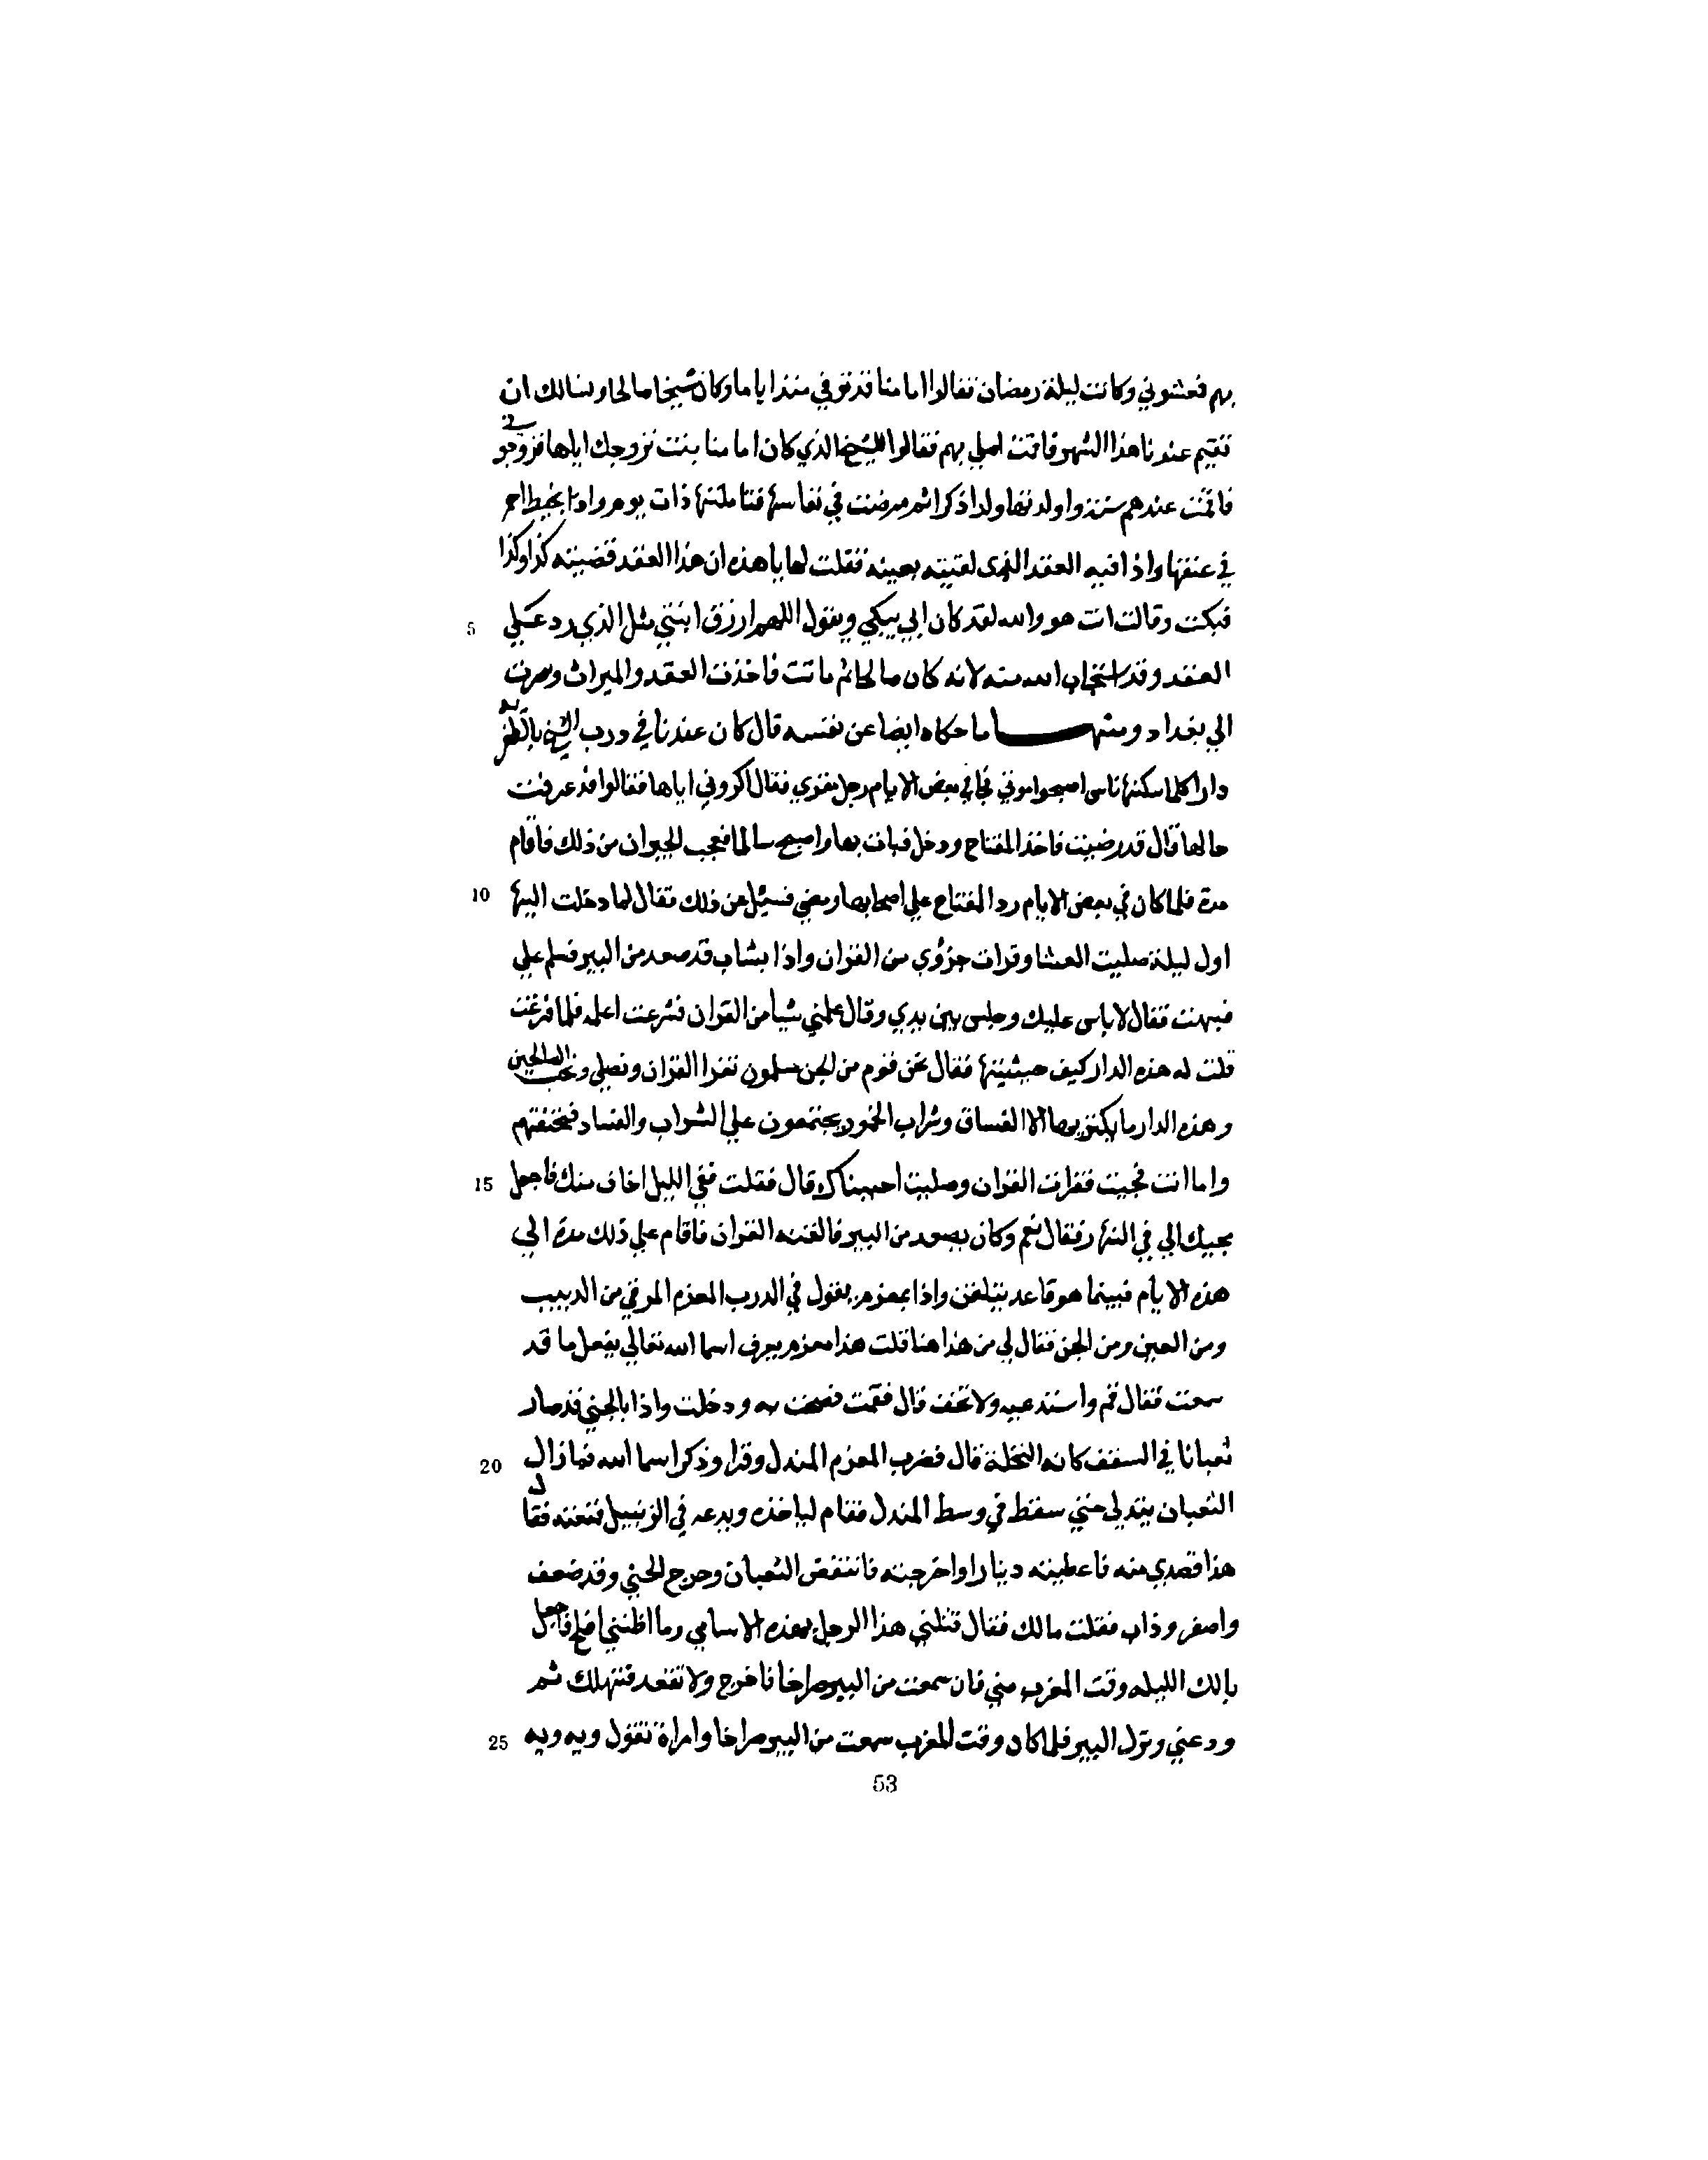 بهم فعشوني وكانت ليلة رمضان فقالوا امامنا قد توفي منذ ايام وكان شيخا صالحا ونسالك ان
تقيم عندنا هذا الشهر فاقمت اصلي بهم فقالوا للشيخ الذي كان امامنا بنت نزوجك اياها فزوجوني
فاقمت عندهم سنة واولدتها ولدا ذكرا ثم مرضت في نفاسها فتاملتها ذات يوم واذا بخيط احمر
في عنقها واذا فيه العقد الذى لقيته بعينه فقلت لها يا هذه ان هذا العقد قضيته كذا وكذا
5 فبكت وقالت انت هو والله لقد كان ابي يبكي ويقول اللهم ارزق ابنتي مثل الذي رد علي
العقد وقد استجاب الله منه لانه كان صالحا ثم ماتت فاخذت العقد والميراث وصرت
الي بغداد ومنها ما حكاه ايضا عن نفسه قال كان عندنا في درب الشيخ بالظفرية
دارا كلما سكنها ناس اصبحوا موتي فجا في بعض الايام رجل مقري فقال اكروني اياها فقالوا قد عرفت
حالها قال قد رضيت فاخذ المفتاح ودخل فبات بها واصبح سالما فعجب الجيران من ذلك فاقام
10 مدة فلما كان في بعض الايام رد المفتاح علي اصحابها ومضي فسئل عن ذلك فقال لما دخلت اليها
اول ليلة صليت العشا وقرات جزؤي من القران واذا بشاب قد صعد من البير فسلم علي
فبهت فقال لا باس عليك وجلس بين يدي وقال علمني شيا من القران فشرعت اعلمه فلما فرغت
قلت له هذه الدار كيف حديثها فقال نحن قوم من الجن مسلمون نقرا القران ونصلي ونحب الصالحين
وهذه الدار ما يكتريها الا الفساق وشراب الخمور يجتمعون علي الشراب والفساد فنخنقهم
15 واما انت فجيت فقرات القران وصليت احببناك قال فقلت ففي الليل اخاف منك فاجعل
مجيك الي في النهار فقال نعم وكان يصعد من البير فالقنه القران فاقام علي ذلك مدة الي
هذه الايام فبينما هو قاعد يتلقن واذا بمعزم يقول في الدرب المعزم المرقي من الدبيب
ومن العين ومن الجن فقال لي من هذا هنا قلت هذا معزم يعرف اسما الله تعالي يفعل ما قد
سمعت فقال قم واستدعيه ولا تخف قال فقمت فصحت به ودخلت واذا بالجني قد صار
20 ثعبانا في السقف كانه النخلة قال فضرب المعزم المندل وقرا وذكر اسما الله فما زال
الثعبان يتدلي حتي سقط في وسط المندل فقام لياخذه ويدعه في الزنبيل فمنعته فقال
هذا قصدي منه فاعطيته دينارا واخرجته فانتفض الثعبان وخرج الجني وقد ضعف
واصفر وذاب فقلت مالك فقال قتلني هذا الرجل بهذه الاسامي وما اظنني افلح فاجعل
بالك الليله وقت المغرب مني فان سمعت من البير صراخا فاخرج ولا تقعد فتهلك ثم
25 ودعني ونزل البير فلما كان وقت المغرب سمعت من البير صراخا وامراة تقول ويه ويه
53